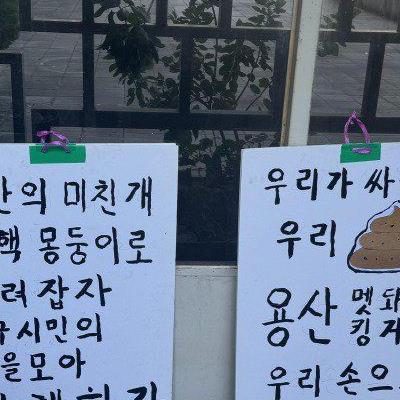 의 미친개
핵 몽둥이로
려잡자
시민의
을모아
우리가 싸
우리
용산 멧돼
킹
우리 손으